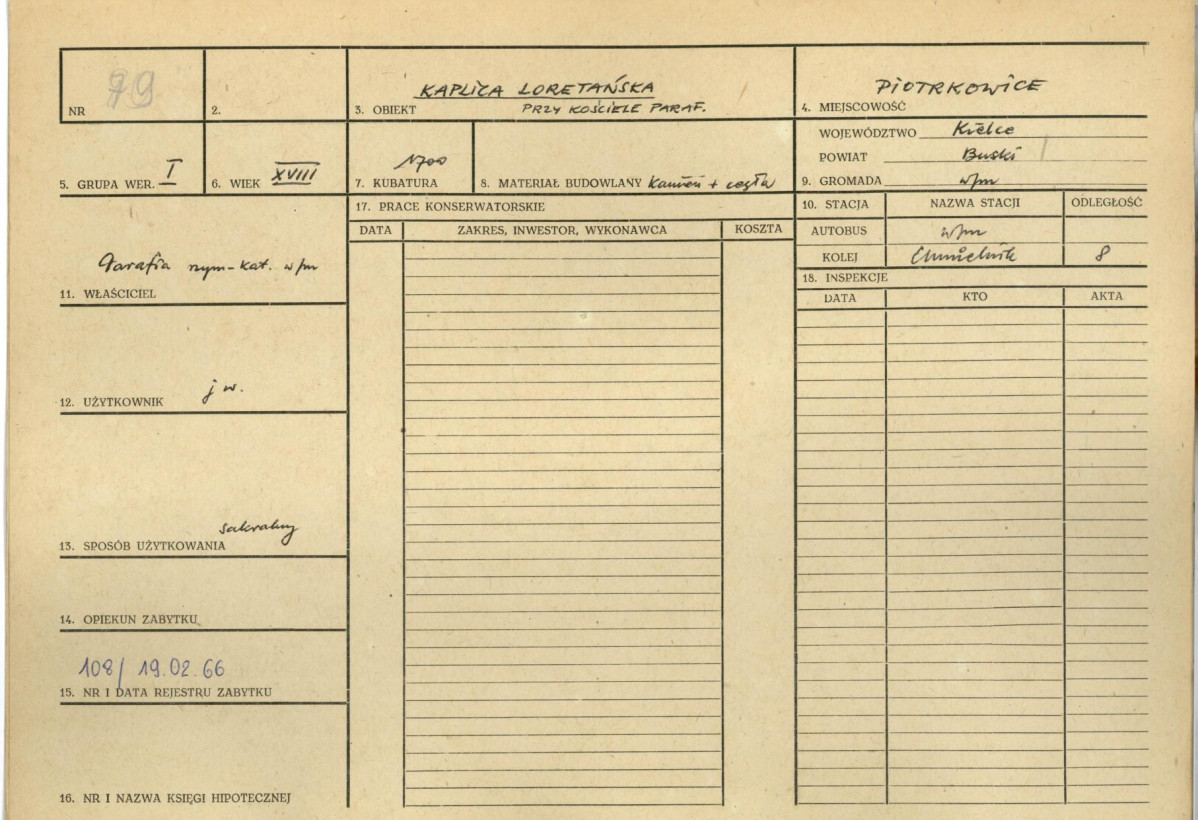 79
NR
2.
KAPLICA LORETAŃSKA
3. OBIEKT PRZY KOŚCIELE PARAF.
PIOTRKOWICE
4. MIEJSCOWOŚĆ
5. GRUPA WER. I
6. WIEK XVIII
1700
7. KUBATURA
8. MATERIAŁ BUDOWLANY kamień + cegła
WOJEWÓDZTWO Kielce
POWIAT Buski
9. GROMADA w/m
Parafia rzym-kat. w/m
11. WŁAŚCICIEL
j w.
12. UŻYTKOWNIK
sakralny
13. SPOSÓB UŻYTKOWANIA
14. OPIEKUN ZABYTKU
108/ 19.02.66
15. NR I DATA REJESTRU ZABYTKU
16. NR I NAZWA KSIĘGI HIPOTECZNEJ
17. PRACE KONSERWATORSKIE
DATA ZAKRES, INWESTOR, WYKONAWCA KOSZTA
10. STACJA NAZWA STACJI ODLEGŁOŚĆ
AUTOBUS w/m
KOLEJ Chmielnik 8
18. INSPEKCJE
DATA KTO AKTA